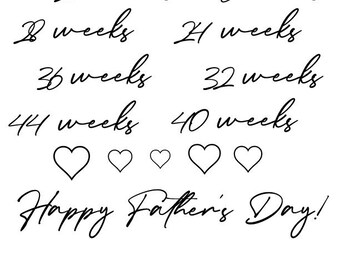 28 weeks 24 weeks
36 weeks 32 weeks
44 weeks 40 weeks
Happy Father's Day!